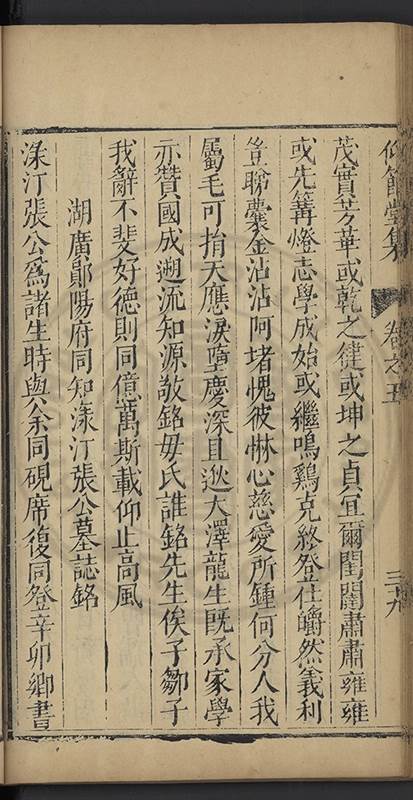 仰節堂集 卷之五 三十九
茂實芳華或乾之健或坤之貞宜爾閨閫肅肅雍雍
或先篝燈志學成始或繼鳴鷄克終登仕皭然義利
豈睇囊金沾沾阿堵愧彼惏心慈愛所鍾何分人我
屬毛可捐天應淚墮慶深且逖大澤龍生旣承家學
亦贊國成遡流知源敬銘毋氏誰銘先生俟子鄒子
我辭不斐好德則同億萬斯載仰止高風
湖廣鄖陽府同知漾汀張公墓誌銘
漾汀張公爲諸生時與余同硯席復同登辛卯鄉書